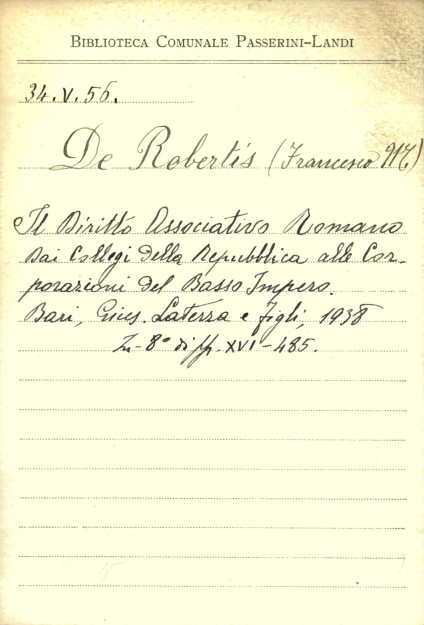 BIBLIOTECA COMUNALE PASSERINI-LANDI
34.V.56.
De Robertis (Francesco M)
Il Diritto Associativo Romano
Dai Collegi Della Repubblica alle Cor-
porazioni Del Basso Impero.
Bari, Gius. Laterza e figli, 1938
In-8° di pp. XVI-485.